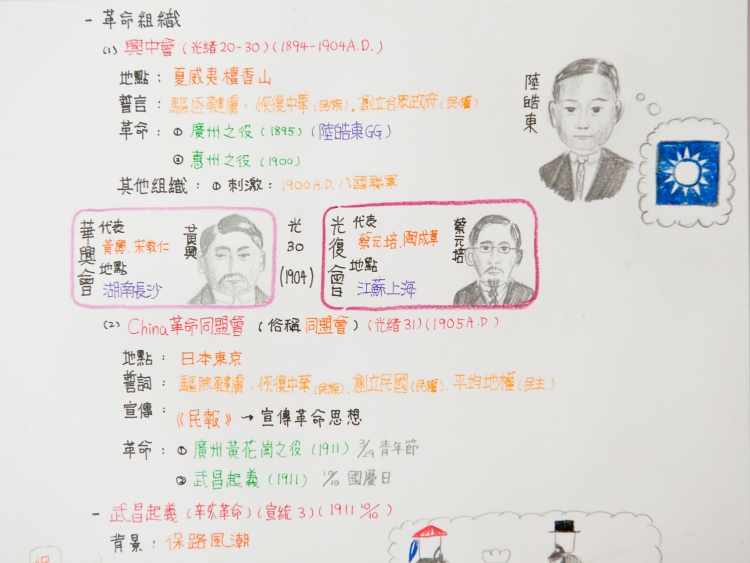 - 革命組織
(1) 興中會 (光緒20-30)(1894-1904A.D.)
地點: 夏威夷檀香山
誓言: 驅逐韃虜, 恢復中華(民族), 創立合眾政府(民權)
革命: ① 廣州之役 (1895) (陸皓東GG)
② 惠州之役 (1900)
其他組織: ① 刺激: 1900A.D. 八國聯軍
陸皓東
華興會
代表
黃興、宋教仁
地點
湖南長沙
黃興
光30(1904)
光復會
代表
蔡元培、陶成章
地點
江蘇上海
蔡元培
(2) China革命同盟會 (俗稱同盟會) (光緒31)(1905A.D)
地點: 日本東京
誓詞: 驅除韃虜, 恢復中華(民族)、創立民國(民權)、平均地權(民主)
宣傳: 《民報》→宣傳革命思想
革命: ① 廣州黃花崗之役 (1911) 3/29 青年節
② 武昌起義 (1911) 10/10 國慶日
- 武昌起義 (辛亥革命)(宣統3)(1911 10/10)
背景: 保路風潮